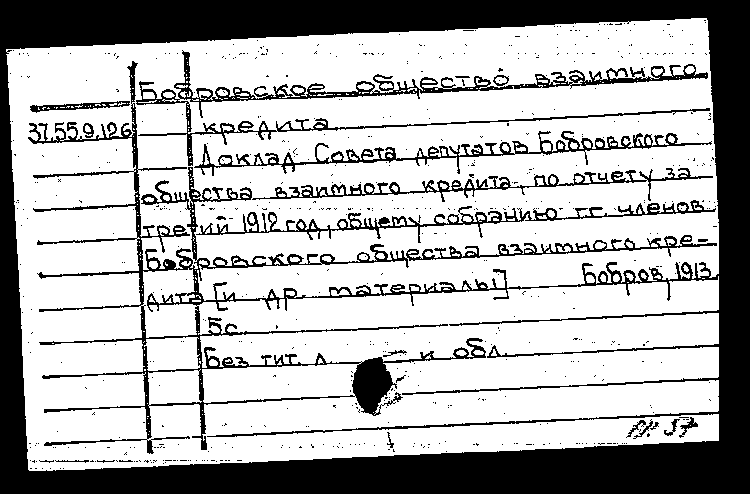 Бобровское общество взаимного
37.55.9.126 кредита.
Доклад Совета депутатов Бобровского
общества взаимного кредита, по отчету за
третий 1912 год, общему собранию г.г. членов
Бобровского общества взаимного кре-
дита [и др. материалы]. Бобров, 1913.
5с.
Без тит. л. и обл.